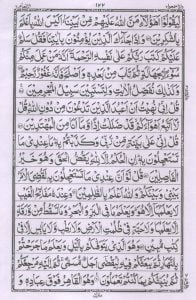 لِّيَقُوْلُوْۤا اَهٰۤؤُلَآءِ مَنَّ اللّٰهُ عَلَيْهِمْ مِّنْۢ بَيْنِنَا اَلَيْسَ اللّٰهُ بِاَعْلَمَ
بِالشّٰكِرِيْنَ وَاِذَا جَآءَكَ الَّذِيْنَ يُؤْمِنُوْنَ بِاٰيٰتِنَا فَقُلْ سَلٰمٌ
عَلَيْكُمْ كَتَبَ رَبُّكُمْ عَلٰى نَفْسِهِ الرَّحْمَةَ اَنَّهٗ مَنْ عَمِلَ مِنْكُمْ
سُوْٓءًۢا بِجَهَالَةٍ ثُمَّ تَابَ مِنْۢ بَعْدِهٖ وَاَصْلَحَ فَاَنَّهٗ غَفُوْرٌ رَّحِيْمٌ
وَكَذٰلِكَ نُفَصِّلُ الْاٰيٰتِ وَلِتَسْتَبِيْنَ سَبِيْلُ الْمُجْرِمِيْنَ
قُلْ اِنِّيْ نُهِيْتُ اَنْ اَعْبُدَ الَّذِيْنَ تَدْعُوْنَ مِنْ دُوْنِ اللّٰهِ قُلْ
لَّاۤ اَتَّبِعُ اَهْوَآءَكُمْ قَدْ ضَلَلْتُ اِذًا وَّمَاۤ اَنَا مِنَ الْمُهْتَدِيْنَ
قُلْ اِنِّيْ عَلٰى بَيِّنَةٍ مِّنْ رَّبِّيْ وَكَذَّبْتُمْ بِهٖ مَا عِنْدِيْ مَا
تَسْتَعْجِلُوْنَ بِهٖ اِنِ الْحُكْمُ اِلَّا لِلّٰهِ يَقُصُّ الْحَقَّ وَهُوَ خَيْرُ
الْفٰصِلِيْنَ قُلْ لَّوْ اَنَّ عِنْدِيْ مَا تَسْتَعْجِلُوْنَ بِهٖ لَقُضِيَ الْاَمْرُ
بَيْنِيْ وَبَيْنَكُمْ وَاللّٰهُ اَعْلَمُ بِالظّٰلِمِيْنَ وَعِنْدَهٗ مَفَاتِحُ الْغَيْبِ
لَا يَعْلَمُهَاۤ اِلَّا هُوَ وَيَعْلَمُ مَا فِي الْبَرِّ وَالْبَحْرِ وَمَا تَسْقُطُ مِنْ وَّرَقَةٍ
اِلَّا يَعْلَمُهَا وَلَا حَبَّةٍ فِيْ ظُلُمٰتِ الْاَرْضِ وَلَا رَطْبٍ وَّلَا يَابِسٍ اِلَّا فِيْ
كِتٰبٍ مُّبِيْنٍ وَهُوَ الَّذِيْ يَتَوَفّٰىكُمْ بِالَّيْلِ وَيَعْلَمُ مَا جَرَحْتُمْ
بِالنَّهَارِ ثُمَّ يَبْعَثُكُمْ فِيْهِ لِيُقْضٰۤى اَجَلٌ مُّسَمًّى ثُمَّ اِلَيْهِ مَرْجِعُكُمْ
ثُمَّ يُنَبِّئُكُمْ بِمَا كُنْتُمْ تَعْمَلُوْنَ وَهُوَ الْقَاهِرُ فَوْقَ عِبَادِهٖ وَ